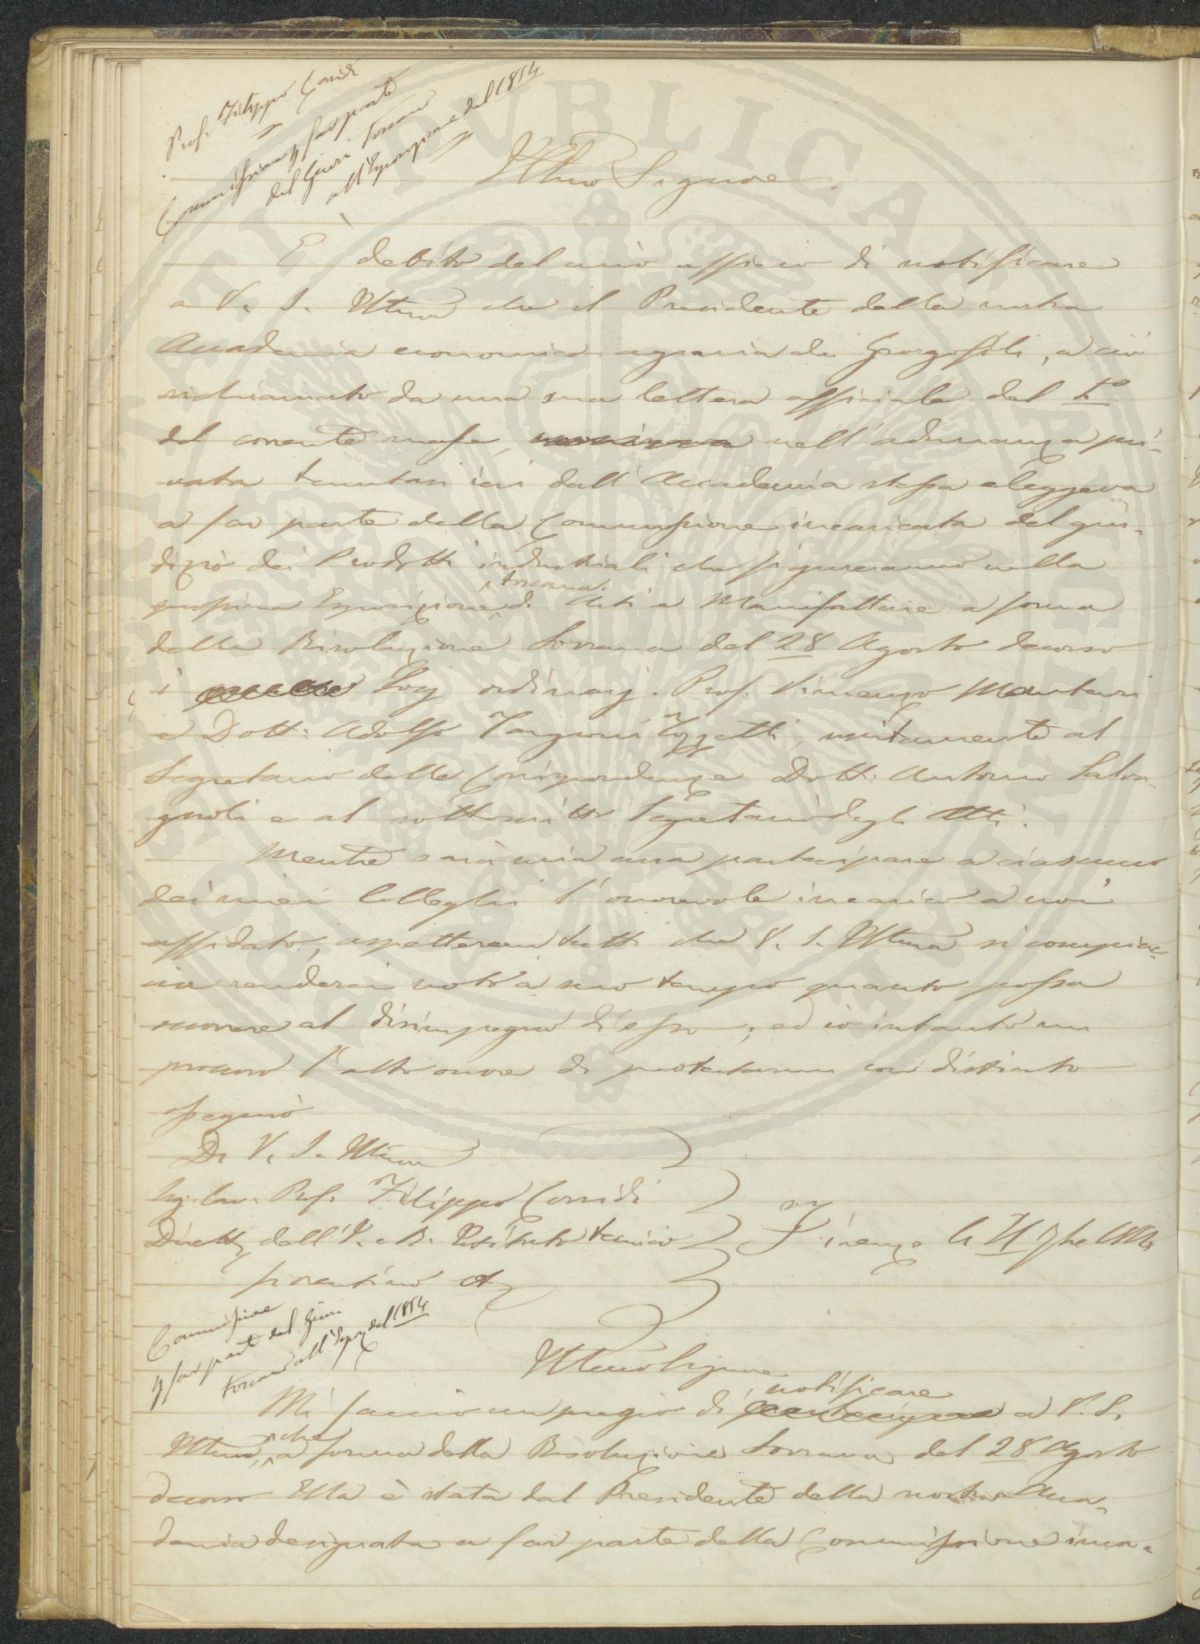 Prof. Filippo Corridi
Commissione p far parte
del Giurì toscano
all'Esposizione del 1854
Illmo Signore.
È debito del mio ufficio di notificare
a V. S. Illma che il Presidente della nostra
Accademia economico agraria dei Georgofili, a ciò
richiamato da una sua lettera officiale del 1o
del corrente mese, nell'adunanza pri-
vata tenutasi ieri dall'Accademia stessa eleggeva
a far parte della Commissione incaricata del giu-
dizio dei Prodotti industriali che figureranno nella
prossima Esposizione toscana di Arti e Manifatture a forma
della Risoluzione Sovrana del 28 Agosto decorso
i Socj ordinarj. Prof. Vincenzo Manteri
e Dott: Adolfo Targioni Tozzetti, unitamente al
Segretario delle Corrispondenze Dott: Antonio Salva-
gnoli e al sottoscritto Segretario degli Atti.
Mentre sarà mia cura partecipare a ciascuno
dei miei Colleghi l'onorevole incarico a noi
affidato, aspetteremo tutti che V. S. Illma si compiac-
cia renderci noto a suo tempo quanto possa
occorrere al disimpegno di esso; ed io intanto mi
procuro l'alto onore di protestarmi con distinto
ossequio
Di V. S. Illma
Sig. Cav. Prof. Filippo Corridi
Dirett dell'I. e R. Istituto tecnico
fiorentino
Firenze li 11 7bre 1854
Commissione
p far parte del Giurì
toscano all'Espos del 1854
Illmo Signore
Mi faccio un pregio di notificare a V. S.
Illma, che a forma della Risoluzione Sovrana del 28 Agosto
decorso Ella è stata dal Presidente della nostra Acca-
demia designata a far parte della Commissione inca-